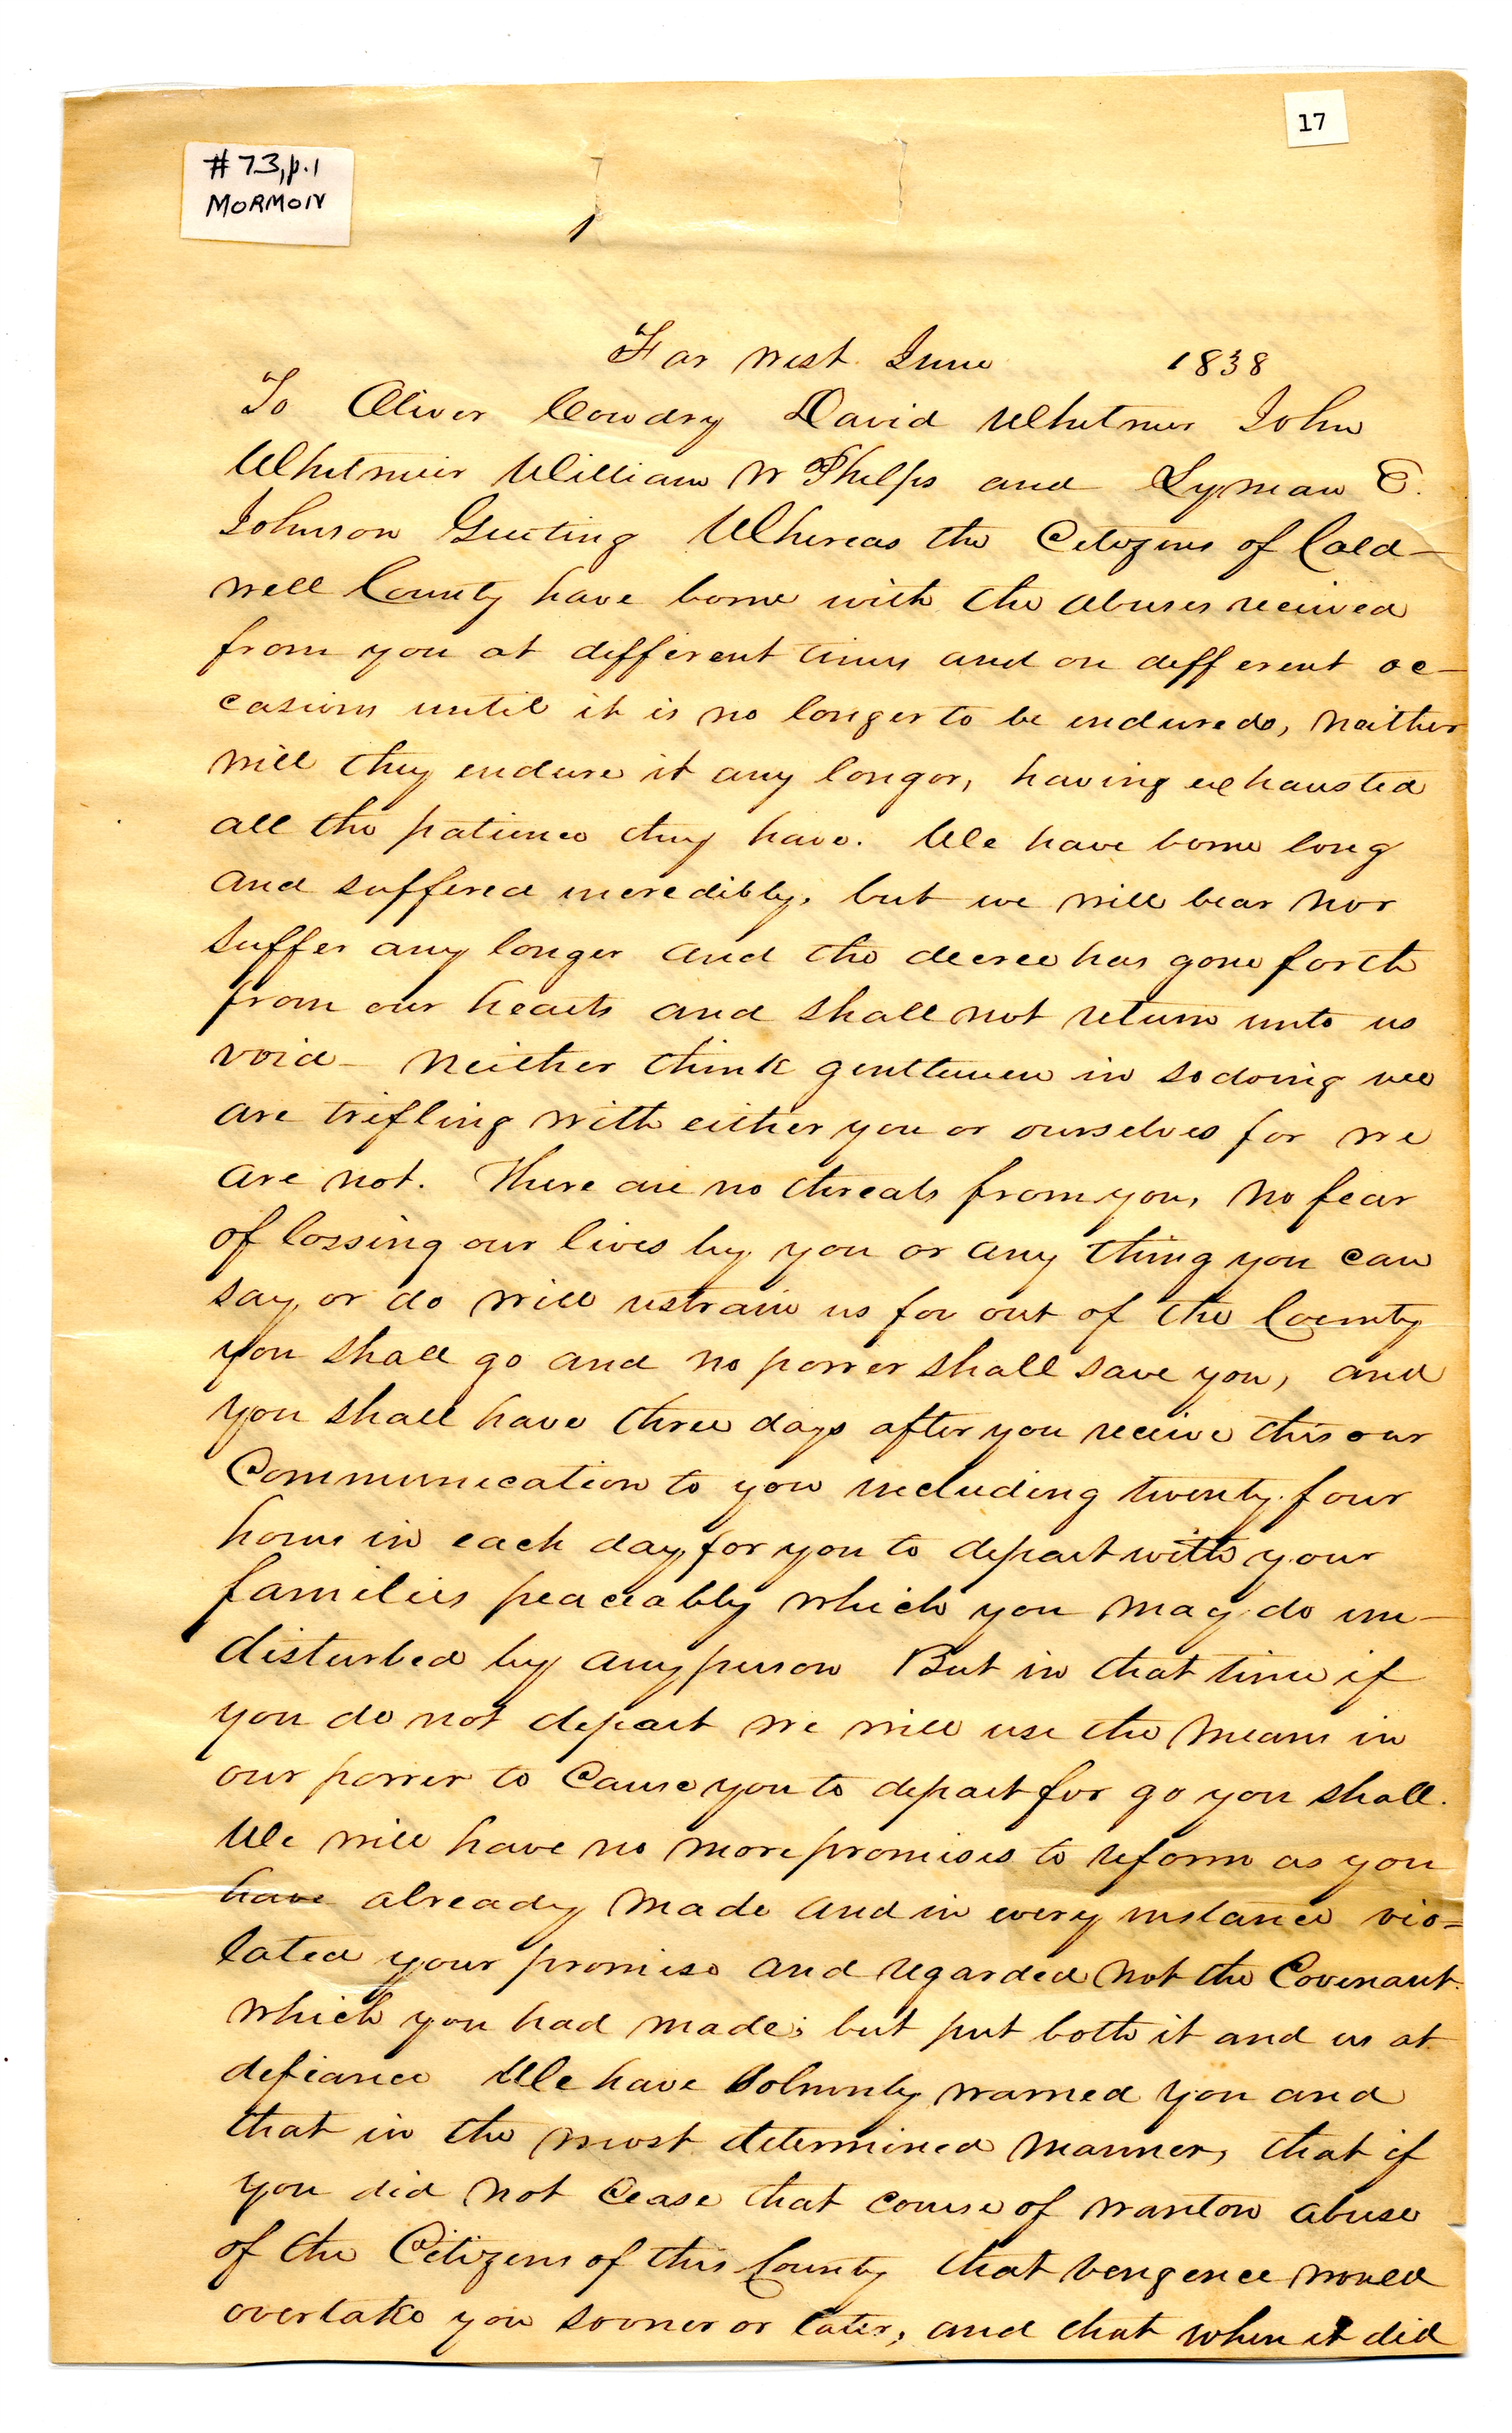 17
#73, p.1
MORMON
1
Far West June 1838
To Oliver Cowdry David Whitmer John
Whitmeir William W Phelps and Lyman E.
Johnson Greeting Whereas the Citizens of Cald-
well County have borne with the abuses received
from you at different times and on different oc-
casions until it is no longer to be endured, neither
will they endure it any longer, having exhausted
all the patience they have. We have borne long
and suffered incredibly, but we will bear nor
suffer any longer and the decree has gone forth
from our hearts and shall not return unto us
void - Neither think gentlemen in so doing we
are trifling with either you or ourselves for we
are not. There are no threats from you, no fear
of lossing our lives by you or any thing you can
say, or do will restrain us for out of the County
you shall go and no power shall save you, and
you shall have three days after you receive this our
Communication to you including twenty four
hours in each day, for you to depart with your
families peaceably which you may do un-
disturbed by any person But in that time if
you do not depart we will use the means in
our power to Cause you to depart for go you shall.
We will have no more promises to reform as you
have already made and in every instance vio=
lated your promise and regarded not the Covenant
which you had made; but put both it and us at
defiance We have Solmnly warned you and
that in the most determined manner, that if
you did not Cease that course of wanton abuse
of the Citizens of this County that vengence would
overtake you sooner or later, and that when it did